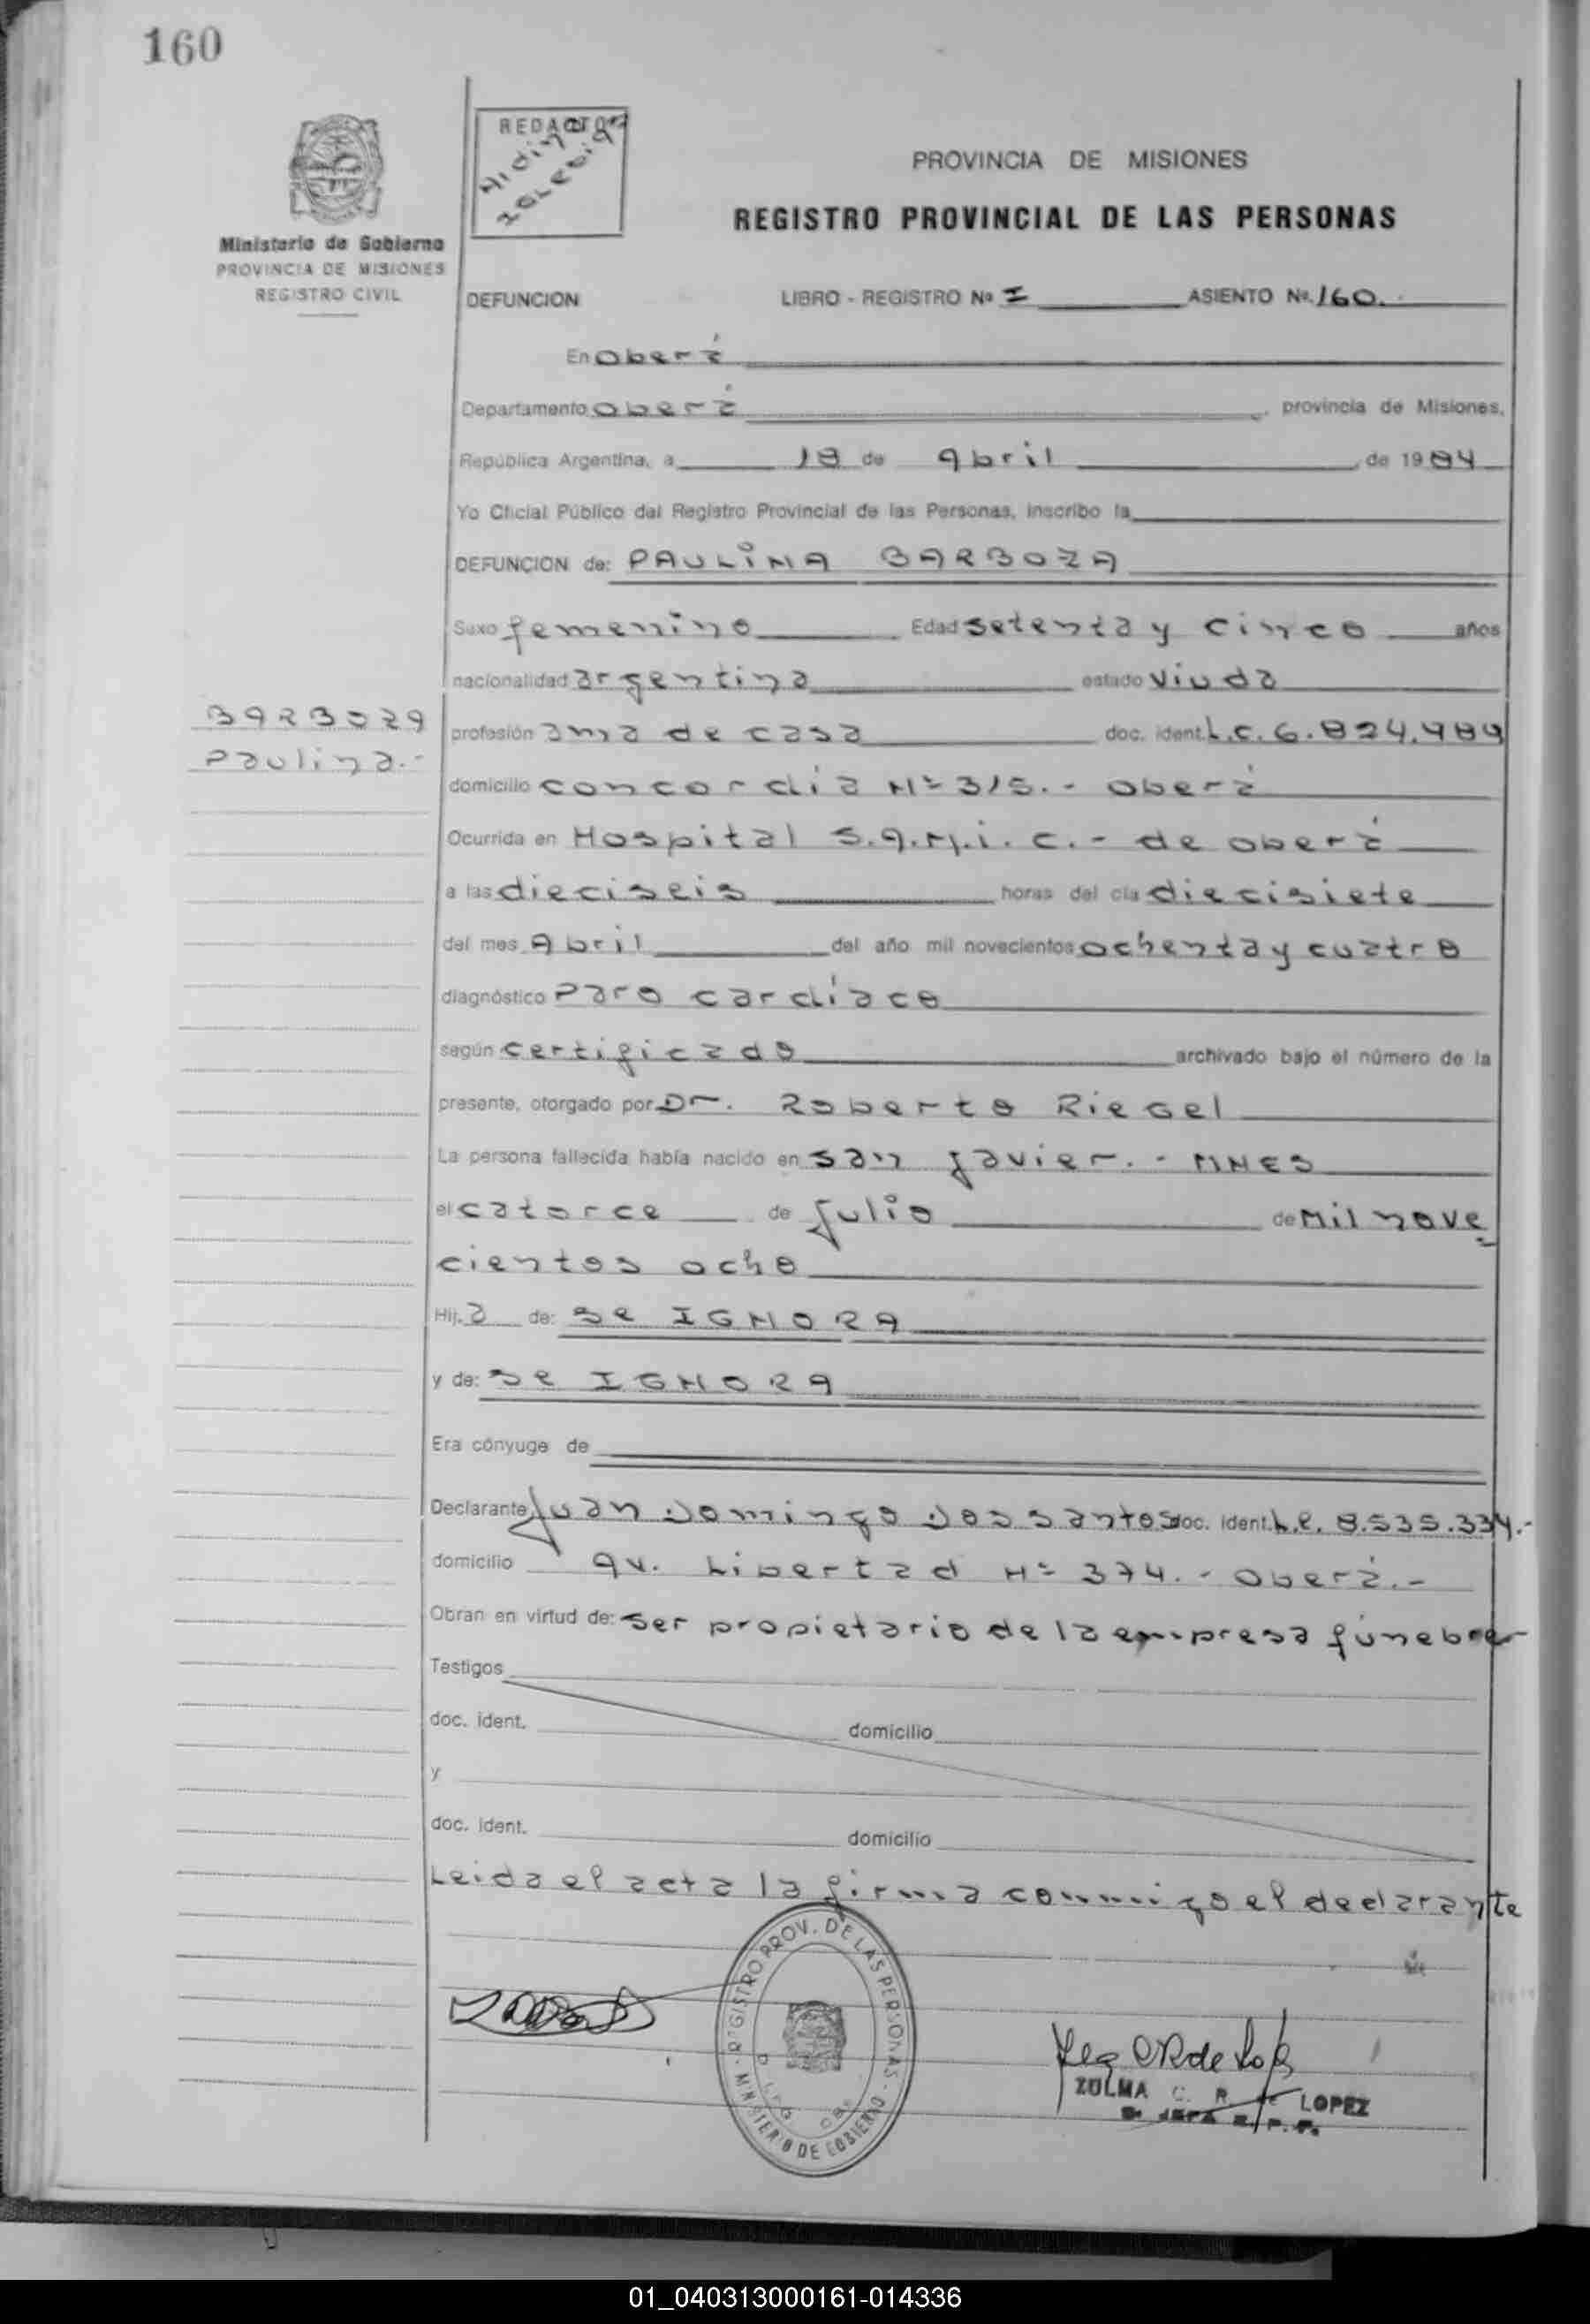 160
REDACTOR
PROVINCIA DE MISIONES
REGISTRO PROVINCIAL DE LAS PERSONAS
Ministerio de Gobierno
PROVINCIA DE MISIONES
REGISTRO CIVIL
DEFUNCION LIBRO - REGISTRO Nº I ASIENTO Nº. 160.
En Oberá
Departamento Oberá, provincia de Misiones,
República Argentina, a 18 de Abril de 1984
Yo Oficial Público del Registro Provincial de las Personas, inscribo la
DEFUNCION de: PAULINA BARBOZA
Sexo femenino Edad setenta y cinco años
nacionalidad argentina estado viuda
profesión ama de casa doc. ident. L.C. 6.824.484
Paulina.-
domicilio Concordia Nº 315.- Oberá
Ocurrida en Hospital S.A.M.i.C.- de Oberá
a las dieciseis horas del día diecisiete
del mes Abril del año mil novecientos ochenta y cuatro
diagnóstico Paro cardíaco
según certificado archivado bajo el número de la
presente, otorgado por Dr. Roberto RieGel
La persona fallecida había nacido en San Javier.- MNES
el catorce de julio de Mil nove
cientos ocho
Hij.a de: Se IGNORA
y de: Se IGNORA
Era cónyuge de
Declarante Juan Domingo Dos Santos doc. ident. L.E. 8.535.334.-
domicilio Av. Libertad Nº 374.- Oberá.-
Obran en virtud de: ser propietario de la empresa fúnebre
Testigos
doc. ident. domicilio
y
doc. ident. domicilio
Leida el acta la firma conmigo el declarante
REGISTRO PROV. DE LAS PERSONAS - MINISTERIO DE GOBIERNO
ZULMA C. R. de LOPEZ
01_040313000161-014336